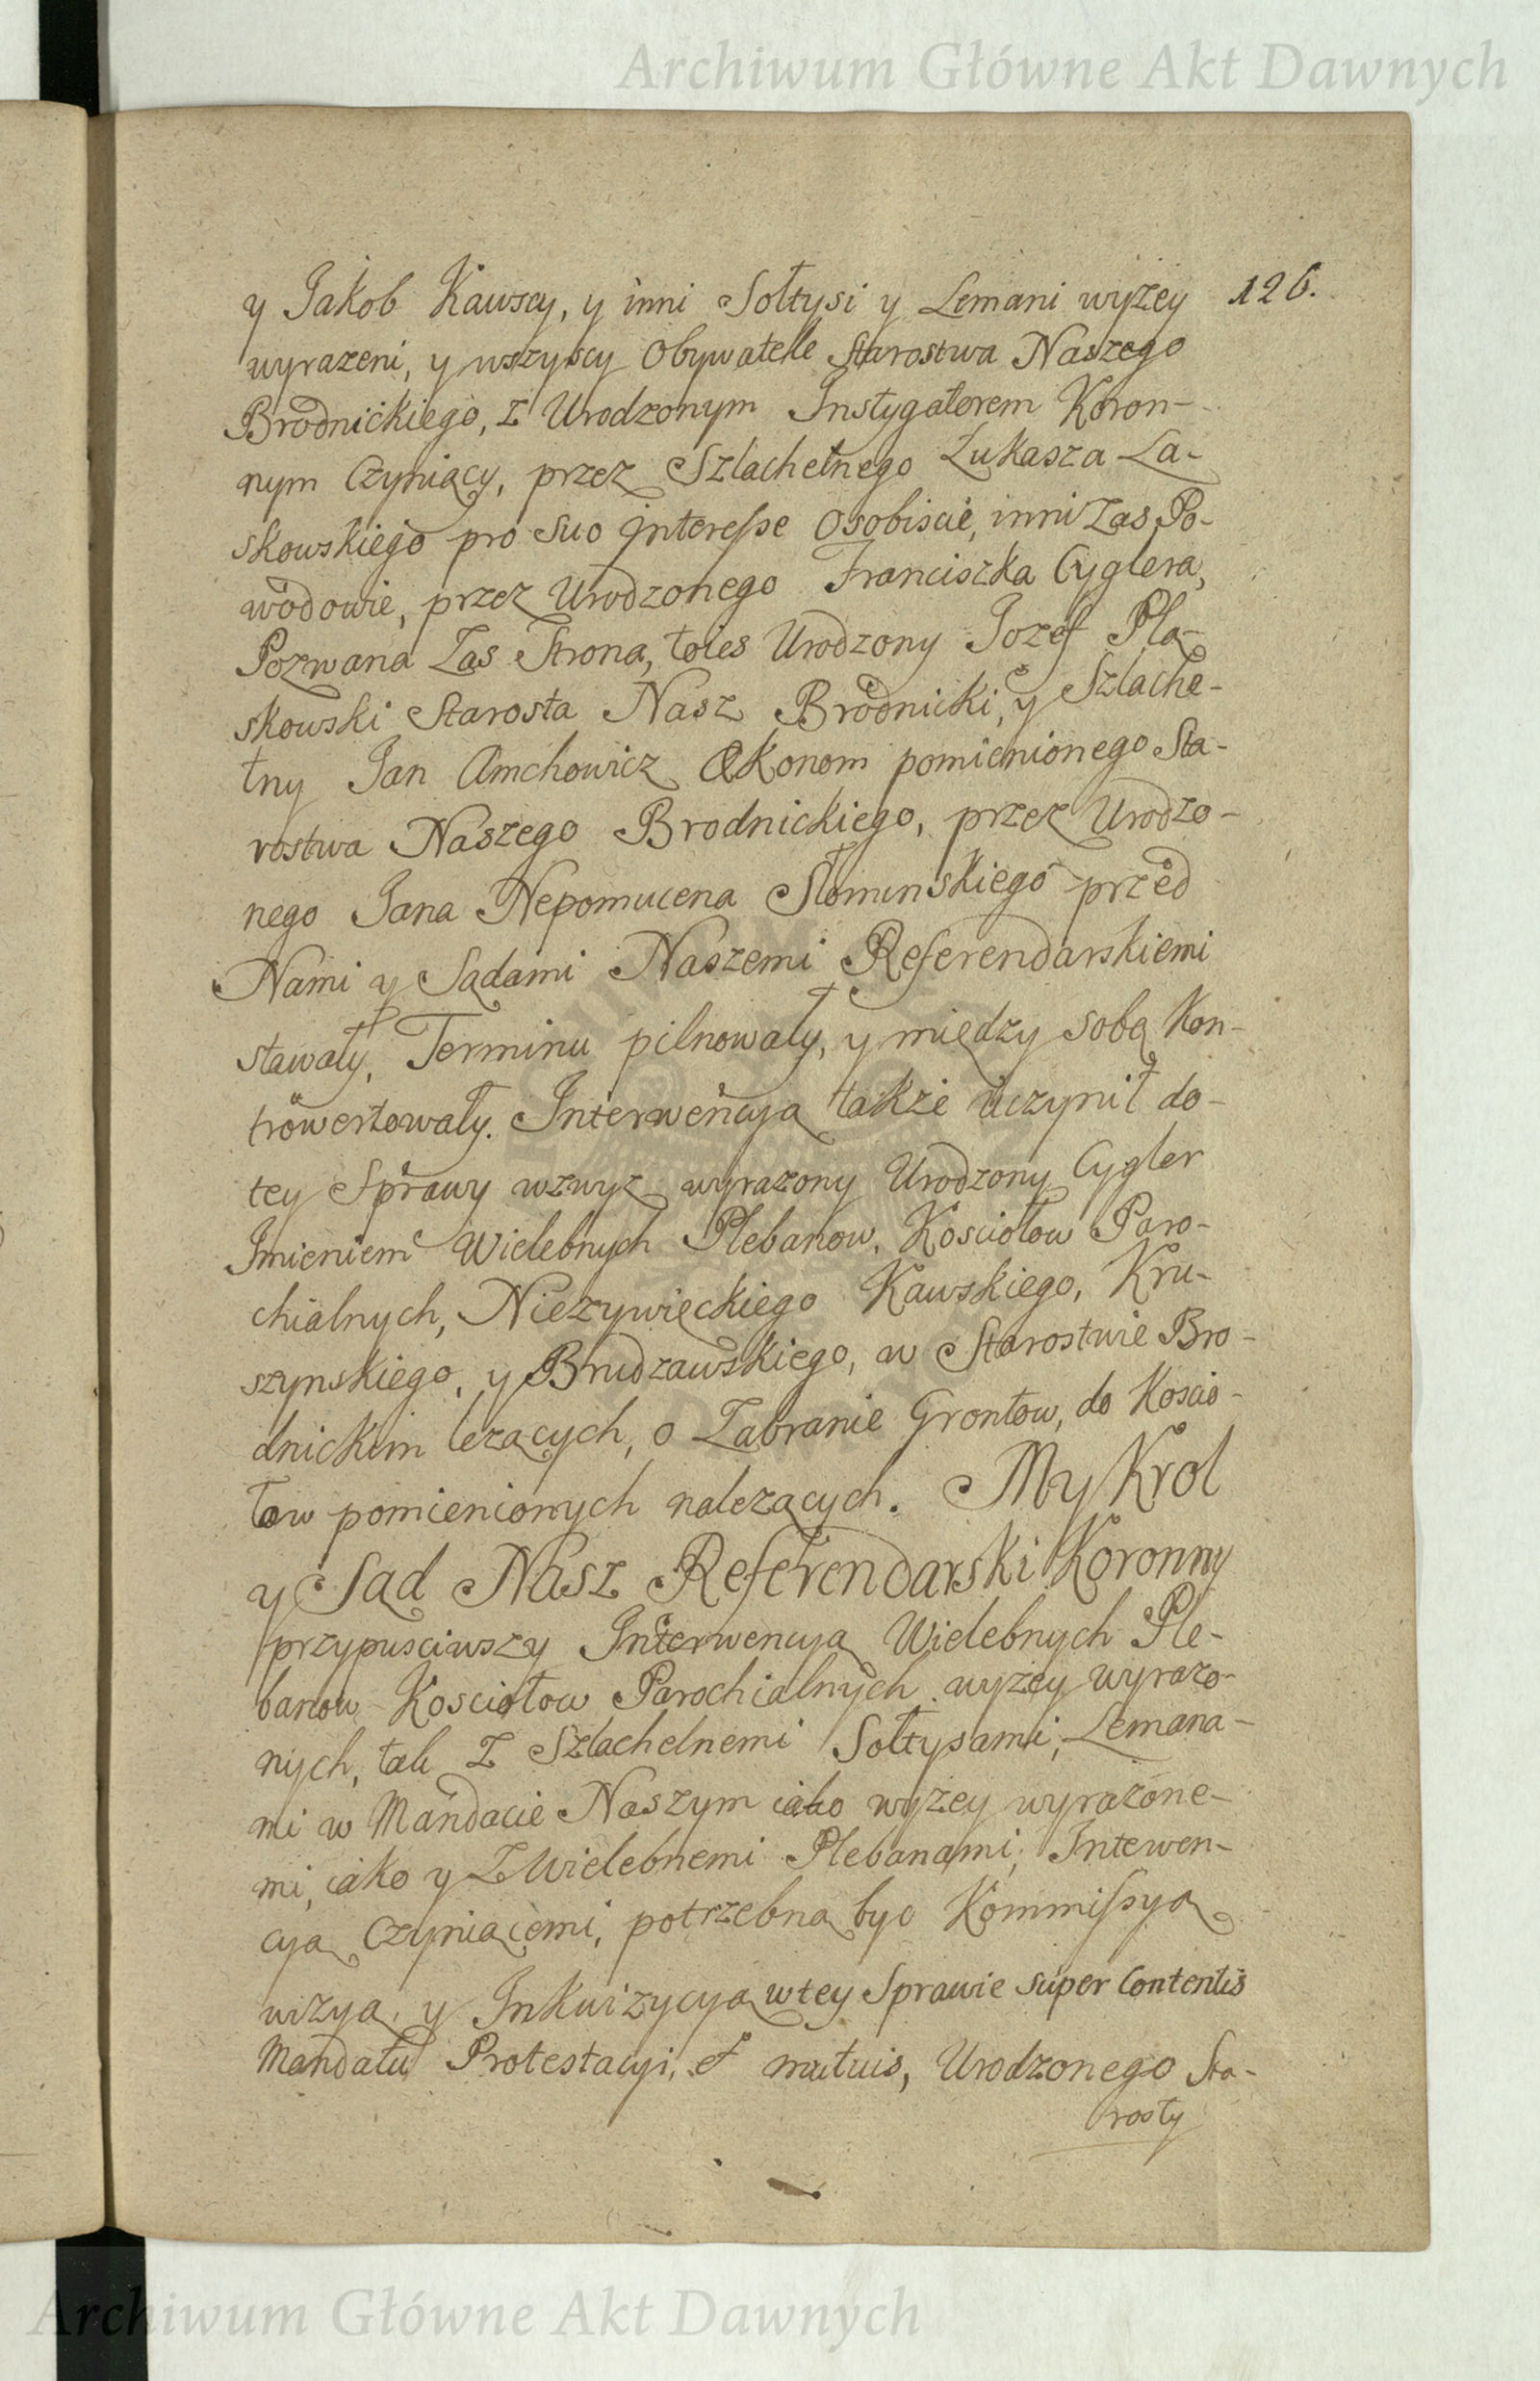 Archiwum Główne Akt Dawnych
126.
y Jakob Kawscy, y inni Sołtysi y Lemani wyżey
wyrazeni, y wszyscy Obywatele Starostwa Naszego
Brodnickiego, z Urodzonym Instygatorem Koron-
nym Czyniący, przez Szlachetnego Łukasza La-
skowskiego pro suo interesse Osobiscie, inni Zas Po-
wodowie, przez Urodzonego Franciszka Cyglera,
Pozwana Zas Strona, toies Urodzony Jozef Plą-
skowski Starosta Nasz Brodnicki, y Szlache-
tny Jan Amchowicz Ekonom pomienionego Sta-
rostwa Naszego Brodnickiego, przez Urodzo-
nego Jana Nepomucena Słominskiego przed
Nami y Sądami Naszemi Referendarskiemi
stawały, Terminu pilnowały, y między sobą Kon-
trowertowały. Interwencyą także uczynił do-
tey Sprawy wzwyz wyrazony Urodzony Cygler
Imieniem Wielebnych Plebanow, Kosciołow Paro-
chialnych, Niezywięckiego Kawskiego, Kru-
szynskiego, y Brudzawskiego, w Starostwie Bro-
dnickim lezących, o Zabranie Grontow, do Koscio-
łow pomienionych nalezących. My Krol
y Sąd Nasz Referendarski Koronny
przypusciwszy Interwencyą Wielebnych Ple-
banow Kosciołow Parochialnych wyzey wyrazo-
nych, tak z Szlachetnemi Sołtysami, Lemana-
mi w Mandacie Naszym iako wyzey wyrazone-
mi, iako y Z Wielebnemi Plebanami, Intewen-
cyą Czyniącemi, potrzebną byc Kommissyą
wizyą, y Inkwizycyą w tey Sprawie super Contentis
Mandatu Protestacyi, et mutuis, Urodzonego Sta-
rosty
Archiwum Główne Akt Dawnych